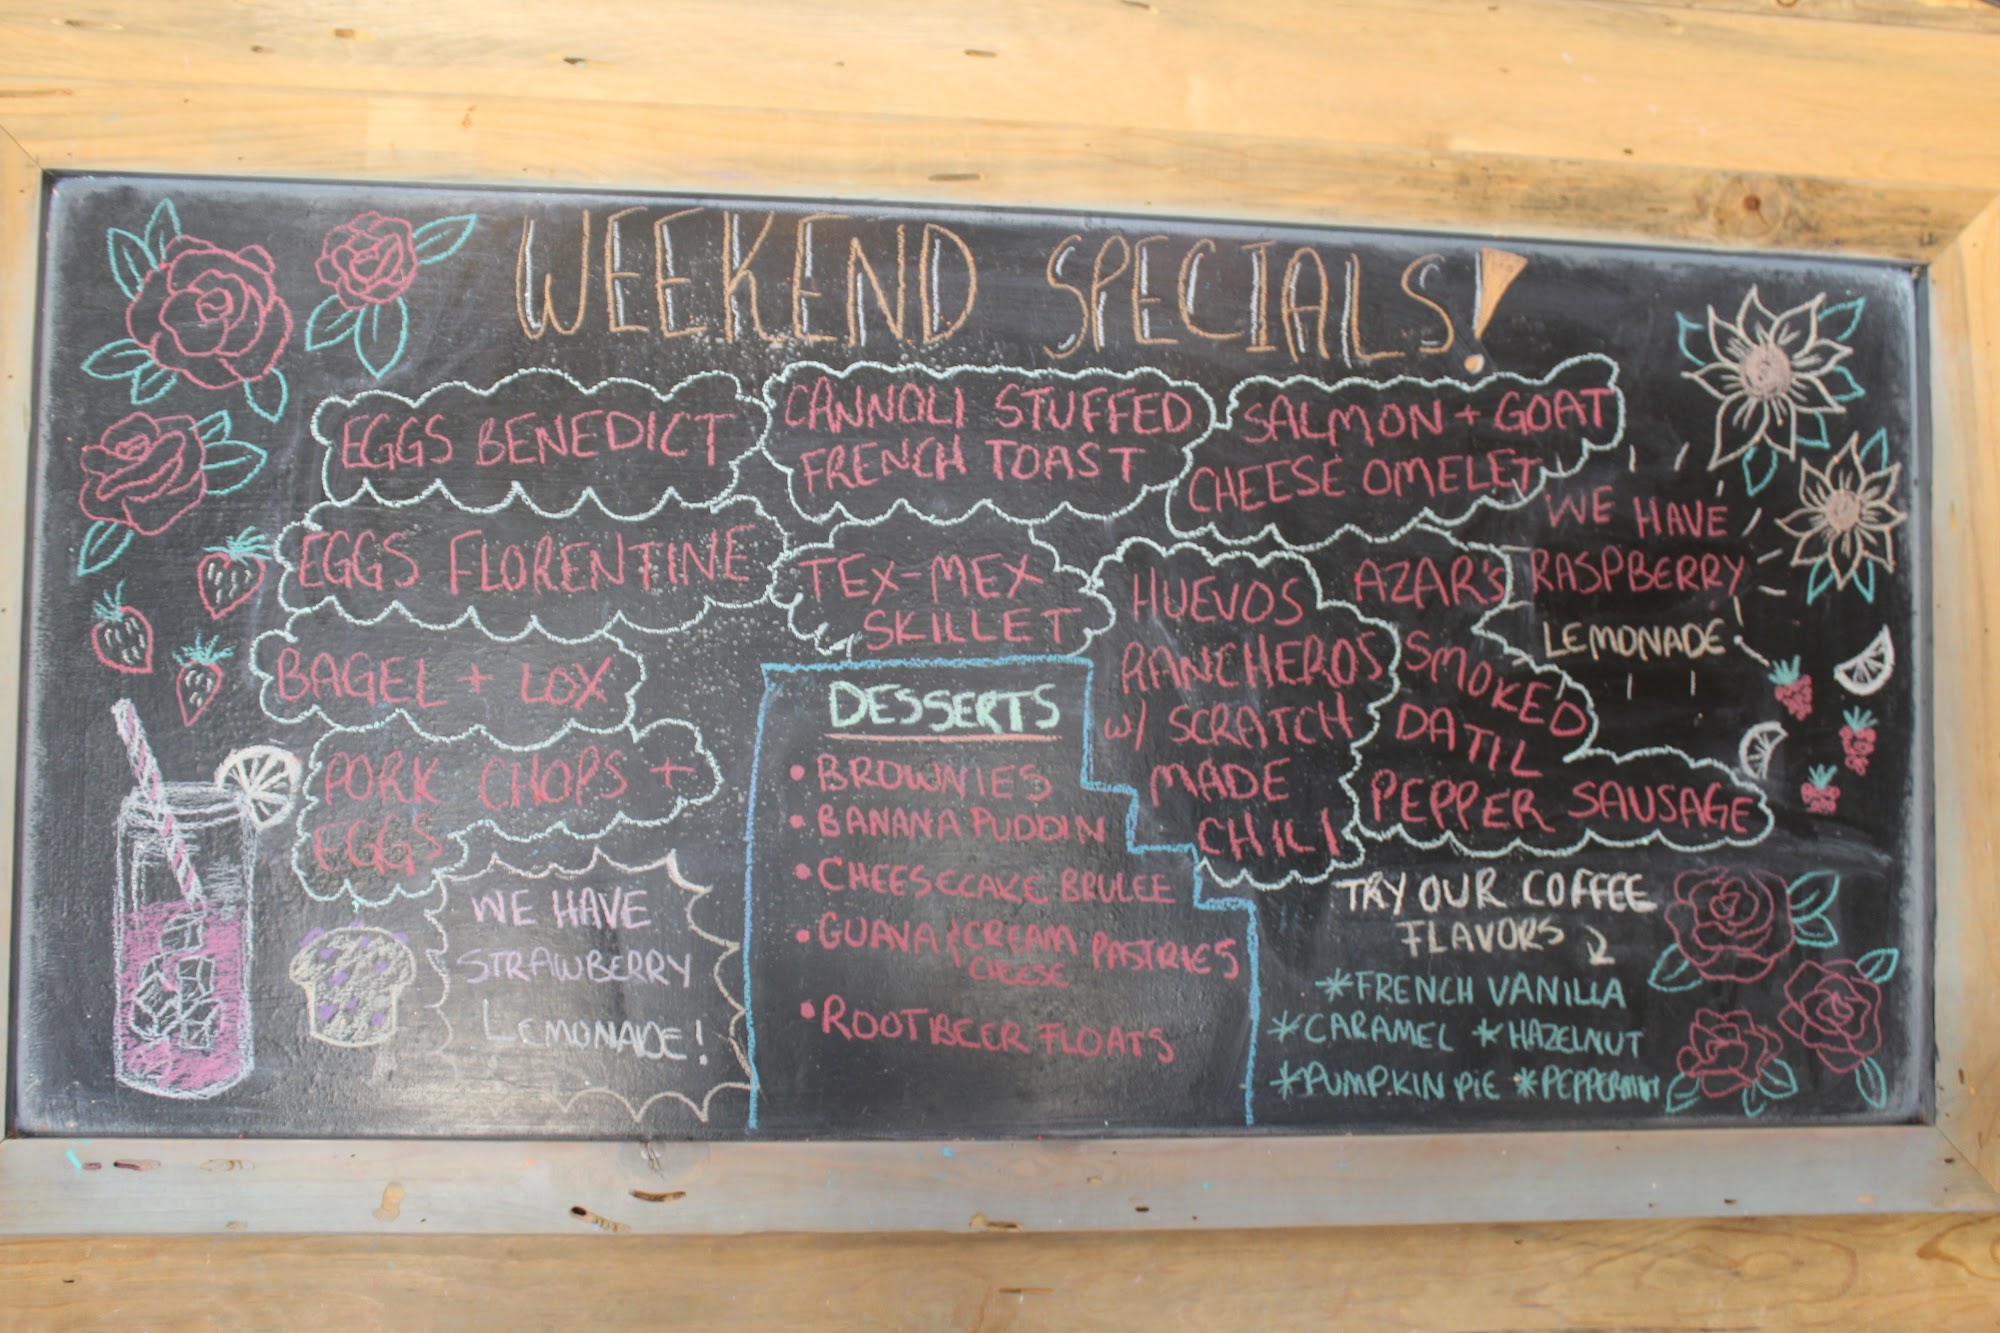 WEEKEND SPECIALS!
EGGS BENEDICT
CANNOLI STUFFED
FRENCH TOAST
SALMON + GOAT
CHEESE OMELET
EGGS FLORENTINE
TEX-MEX
SKILLET
HUEVOS
RANCHEROS
W/ SCRATCH
MADE
CHILI
AZAR'S
SMOKED
DATIL
PEPPER SAUSAGE
WE HAVE
RASPBERRY
LEMONADE
BAGEL + LOX
PORK CHOPS +
EGGS
WE HAVE
STRAWBERRY
LEMONADE!
DESSERTS
• BROWNIES
• BANANA PUDDIN
• CHEESECAKE BRULEE
• GUAVA & CREAM PASTRIES
CHEESE
• ROOTBEER FLOATS
TRY OUR COFFEE
FLAVORS
*FRENCH VANILLA
*CARAMEL *HAZELNUT
*PUMPKIN PIE *PEPPERMINT